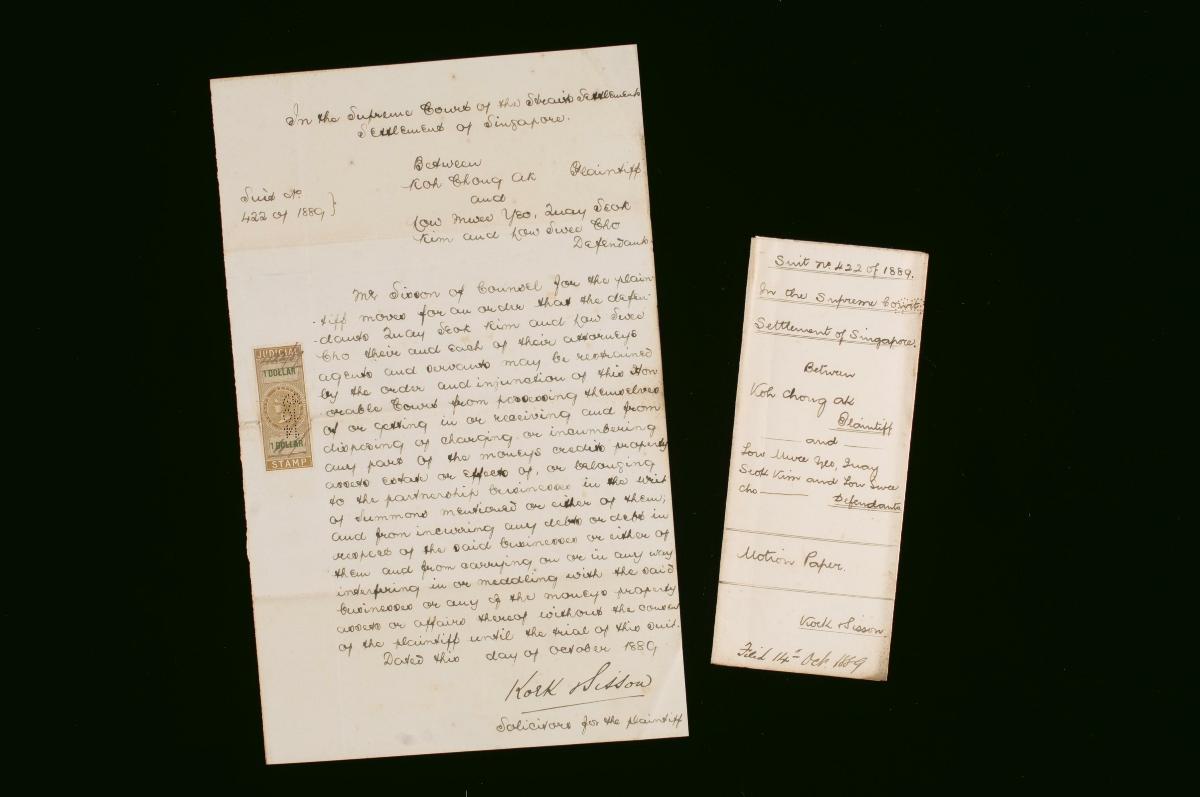 In the Supreme Court of the Straits Settlements
Settlement of Singapore.
Between
Koh Chong Ak Plaintiff
and
Low Mwee Yeo, Quay Seok
Kim and Low Swee Cho
Defendants.
Suit No.
422 of 1889
Mr Sisson of Counsel for the plain-
tiff moves for an order that the defen-
dants Quay Seok Kim and Low Swee
Cho their and each of their attorneys
agents and servants may be restrained
by the order and injunction of this Hon
orable Court from possessing themselves
of or getting in or receiving and from
disposing of charging or incumbering
any part of the moneys credits property
assets estate or effects of, or belonging
to the partnership businesses in the writ
of Summons mentioned or either of them;
and from incurring any debts or debt in
respect of the said businesses or either of
them and from carrying on or in any way
interfering in or meddling with the said
businesses or any of the moneys property
assets or affairs thereof without the consen
of the plaintiff until the trial of this suit.
Dated this day of October 1889
Sisson
Solicitors for the plaintiff
JUDICIAL
1 DOLLAR
1 DOLLAR
STAMP
Suit No. 422 of 1889.
In the Supreme Court
Settlement of Singapore.
Between
Koh Chong Ak
Plaintiff
and
Low Mwee Yeo, Quay
Seok Kim and Low Swee
Cho Defendants
Motion Paper.
Sisson.
Filed 14th Oct 1889